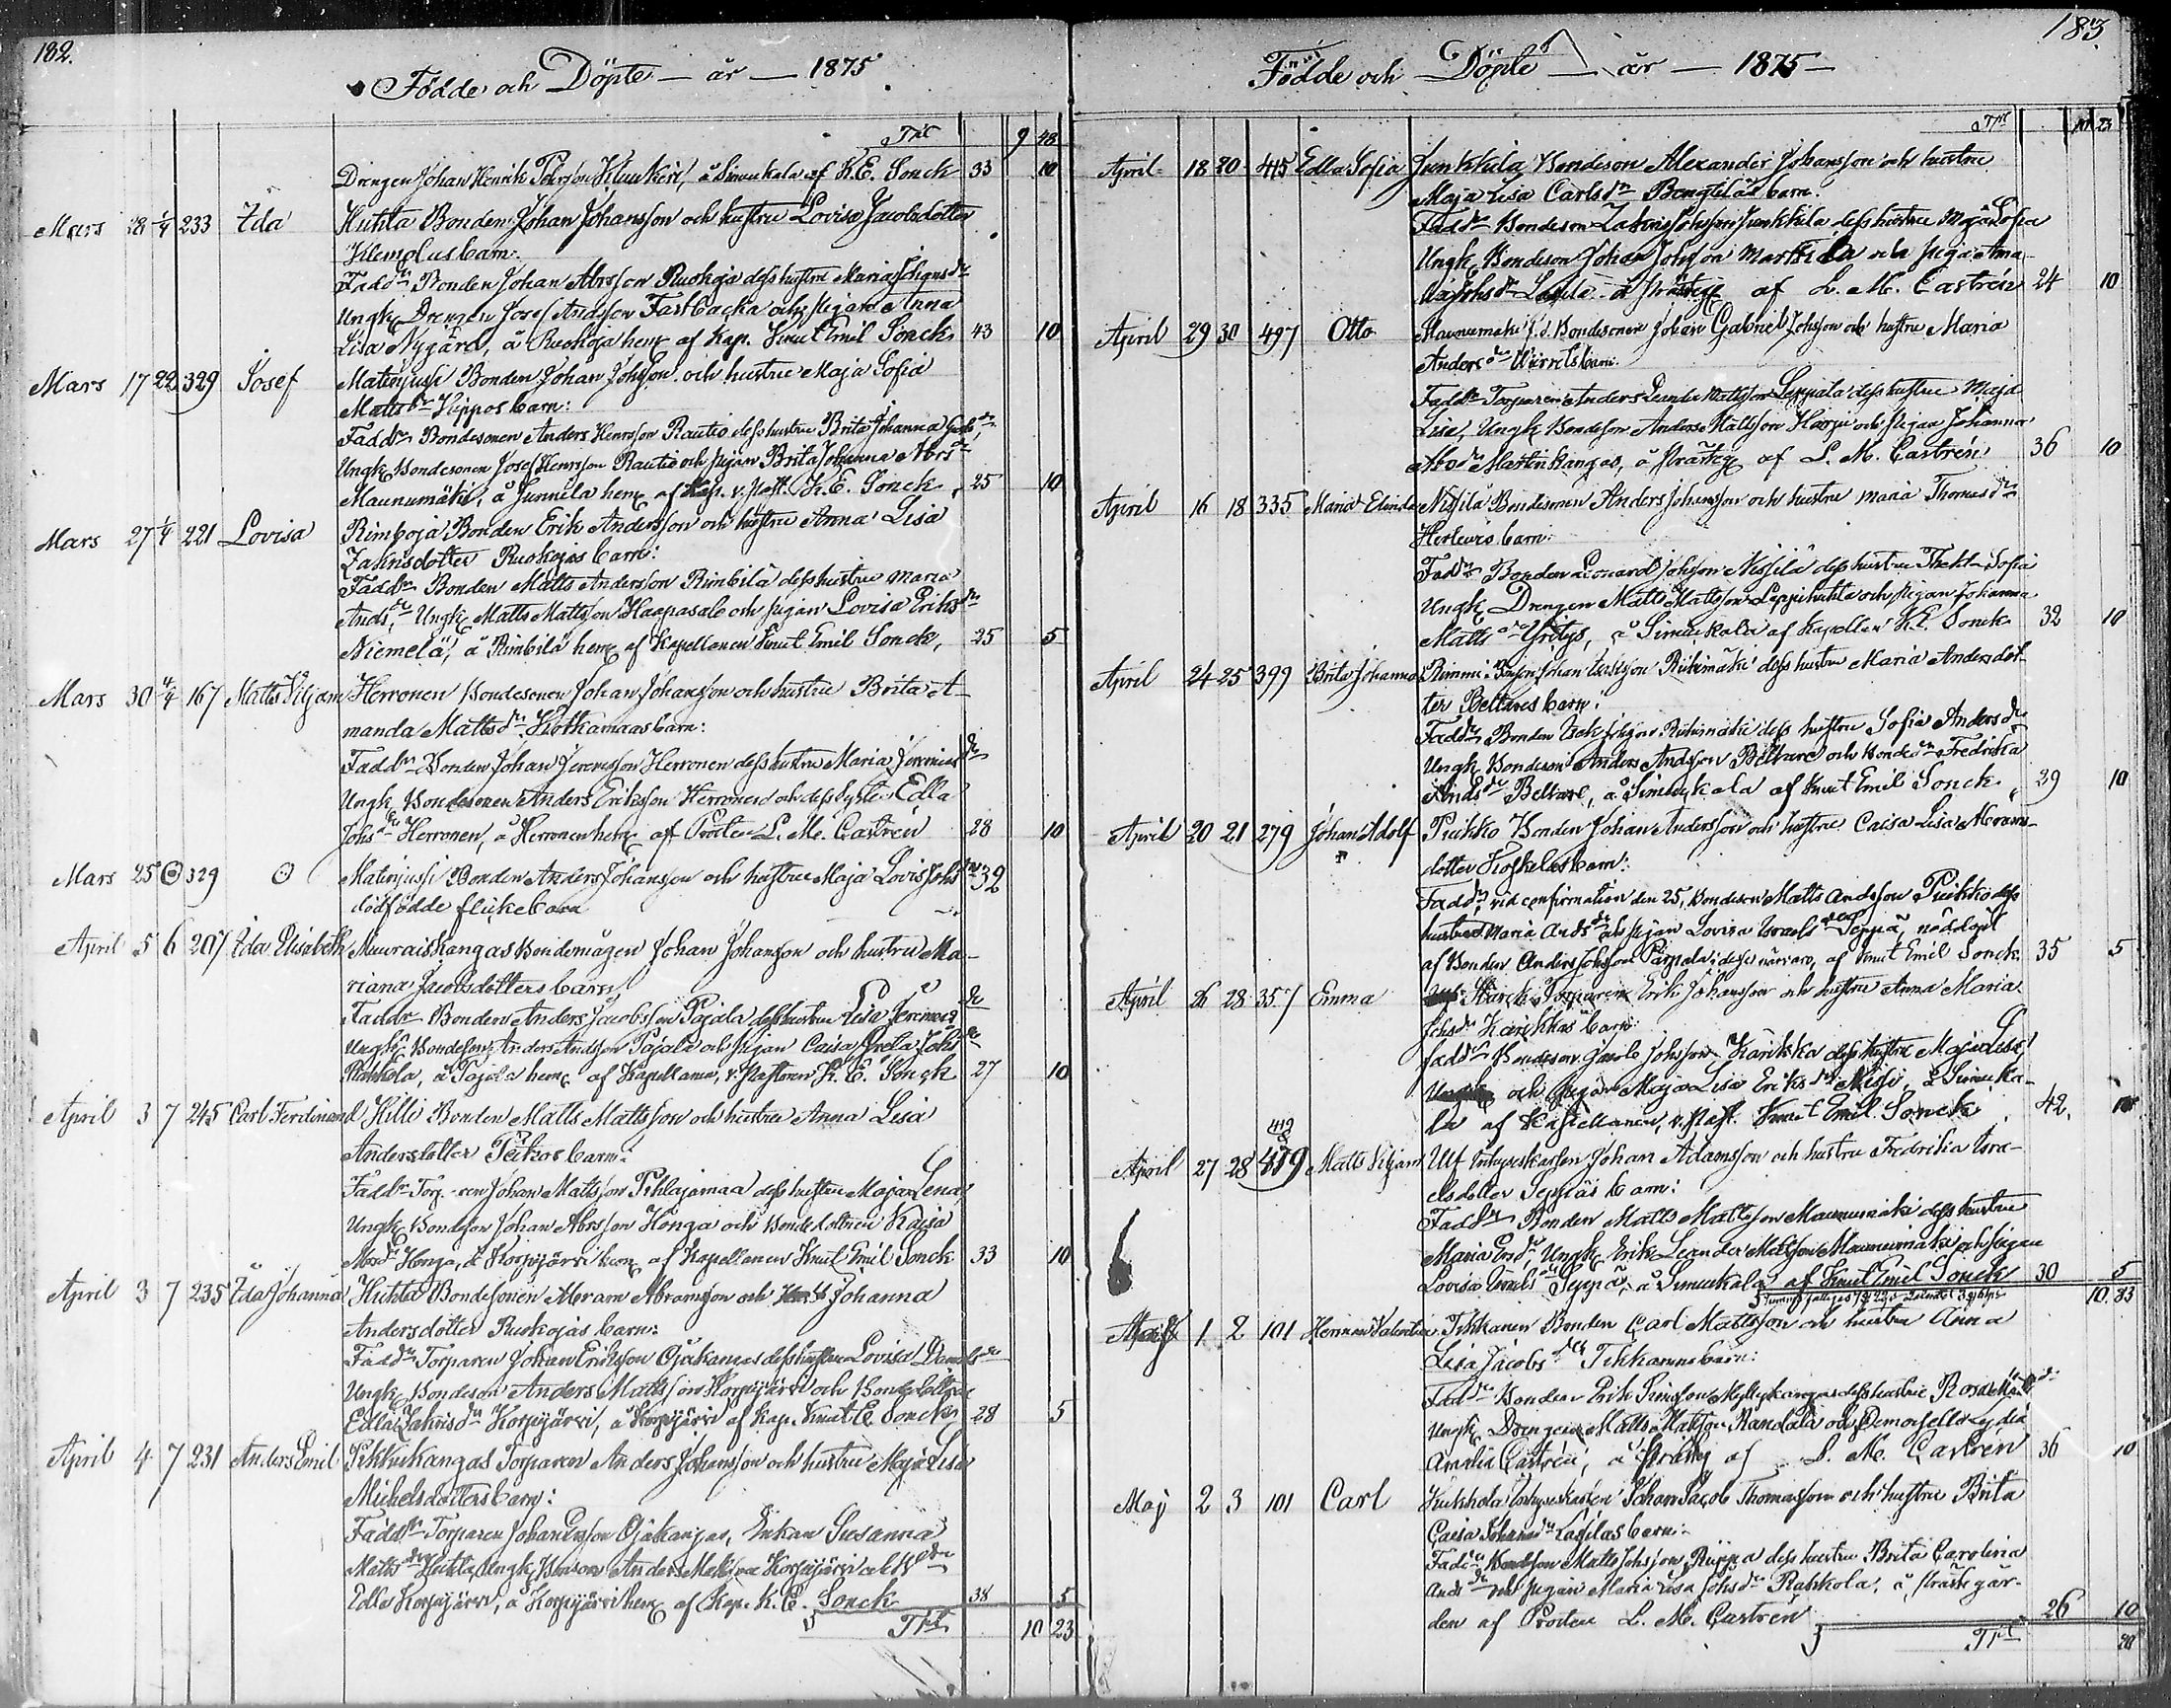 182.
Födde och Döpte — år — 1875
Trt 9 48
Drengen Johan Henrik å Simukala af K. E. Sonck 33 10
Mars 28 1/4 233 Ida Huhta Bonden Johan Johansson och hustru Lovisa Jacobsdotter
barn:
Fadd Bonden Johan Abrsson Ruokoja dess hustru Maria
Ungk Drengen Josef Andsson och pigan Anna
Lisa Nygård, å Ruokoja hem af Kap. Knut Emil Sonck 43 10
Mars 17 22 329 Josef Matinjussi Bonden Johan Johsson och hustru Maja Sofia
Matts dr Kippos barn:
Fadd Bondesonen Anders Henrsson Rautio dess hustru Brita Johanna
Ungk Bondesonen Josef Henrsson Rautio och pigan Brita Johanna Abrs dr
Maunumäki, å Junnila hem af Kap. v. Past. K. E. Sonck 25 10
Mars 27 1/4 221 Lovisa Rimboja Bonden Erik Andersson och hustru Anna Lisa
Zakrisdotter Ruokojas barn:
Fadd Bonden Matts Andersson Rimbilä dess hustru Maria
Ands dr Ungk Matts Mattsson Haapasalo och pigan Lovisa Eriks dr
Niemelä, å Rimbilä hem af Kapellanen Knut Emil Sonck, 25 5
Mars 30 4/4 167 Matts Viljam Herronen Bondesonen Johan Johansson och hustru Brita A-
manda Matts dr Kiotkamaas barn:
Fadd Bonden Johan Jeremsson Herronen dess hustru Maria Jeremias dr
Ungk Bondesonen Anders Eriksson Herronen och dess Syster Edla
Johs dr Herronen, å Herronen hem af Prosten L. M. Castrén 28 10
Mars 25 329 Matinjussi Bonden Anders Johansson och hustru Maja Lovis Johs dr 32
dödfödde flickebarn
April 5 6 207 Ida Elisabeth Muuraiskangas Bondemågen Johan Johansson och hustru Ma-
riana Jacobsdotters barn,
Fadd Bonden Anders Jacobsson Pajala dess hustru Lisa Jeremias dr
Ungk Bondeson Anders Andsson Pajala och pigan Caisa Greta Johs dr
Rahkola, å Pajala hem af Kapellanen, v. Pastoren K. E. Sonck 27 10
April 3 7 245 Carl Ferdinand Killi Bonden Matts Mattsson och hustru Anna Lisa
Andersdotter Peikos barn:
Fadd Torparen Johan Mattsson Pihlajamaa dess hustru Maja Lena,
Ungk Bondeson Johan Abrsson Honga och Bondedottren Kaisa
Abrs dr Honga, å Korpijärvi hem af Kapellanen Knut Emil Sonck 33 10
April 3 7 235 Ida Johanna Huhta Bondesonen Abram Abramsson och Johanna
Andersdotter Ruokojas barn:
Fadd Torparen Johan Eriksson Ojakangas dess hustru Lovisa Daniels dr
Ungk Bondeson Anders Mattsson Korpijärvi och Bondedottren
Edla Zakris dr Korpijärvi, å Korpijärvi af Kap. Knut E. Sonck 28 5
April 4 7 231 Anders Emil Pihkukangas Torparen Anders Johansson och hustru Maja Lisa
Mickelsdotters barn:
Fadd Torparen Johan Ersson Ojakangas, Enkan Susanna
Matts dr Huhta, Ungk Bonson Anders Mattsson Korpijärvi och
Edla Korpijärvi, å Korpijärvi hem af Kap. K. E. Sonck 38 5
Trt 10 23
183
Födde och Döpte — år — 1875 —
Trt 10 23
April 18 20 415 Edla Sofia Junkkila Bondeson Alexander Johansson och hustru
Maja Lisa Carls dr Bengtiläs barn.
Fadd Bondeson Zakris Johsson Junkkila dess hustru Maja Sofia
Ungk Bondeson Johan Johsson Markkila och pigan Anna
å prästg af L. M. Castrén 24 10
April 29 30 497 Otto Maunumäki Bondesonen Johan Gabriel Johsson och hustru Maria
Anders dr barn.
Fadd Torparen Anders Leander Mattsson Leppiälä dess hustru Maja
Lisa, Ungk Bondeson Anders Mattsson Harju och pigan Johanna
Abrs dr Martinkangas, å prästg af L. M. Castrén 36 10
April 16 18 335 Maria Elinda Nissilä Bondesonen Anders Johansson och hustru Maria Thomas dr
barn:
Fadd Bonden Leonard Johsson Nissilä dess hustru Thekla Sofia
Ungk Drengen Matts Mattsson Leppihuhta och pigan Johanna
Matts dr Yritys, å Simukala af Kapellan K. E. Sonck 32 10
April 24 25 399 Brita Johanna Rimmi Bonden Johan Isaksson Riihimäki dess hustru Maria Andersdot-
ter Beltares barn:
Fadd Bonden Isak Johsson Riihimäki dess hustru Sofia Anders dr
Ungk Bondeson Anders Andsson Beltare och Bonded Fredrika
Ands dr Beltare, å Simukala af Knut Emil Sonck 39 10
April 20 21 279 Johan Adolf Puikko Bonden Johan Andersson och hustru Caisa Lisa Abrams-
dotter Koskelas barn:
Fadd, vid confirmation den 25, Bondeson Matts Andsson Puikko dess
hustru Maria Ands dr och pigan Lovisa Israels dr Seppä, nöddöpt
af Bonden Anders Johsson Pärpälä; dess närvaro, af Knut Emil Sonck 35 5
April 26 28 357 Emma Starck Torparen Erik Johansson och hustru Anna Maria
Johs dr Karikkas barn:
Fadd Bondeson Jacob Johsson Karikka dess hustru Maja Lisa,
och pigan Maja Lisa Eriks dr Nissi, å Simuka-
la af Kapellanen, v. Past. Knut Emil Sonck 42. 10
412
April 27 28 479 Matts Viljam Ulf Inhyseskarlen Johan Adamsson och hustru Fredrika Isra-
elsdotter Seppäs barn:
Fadd Bonden Matts Mattsson Maunumäki dess hustru
Maria Ers dr Ungk Erik Leander Mattsson Maunumäki och pigan
Lovisa Israels dr Seppä, å Simukala af Knut Emil Sonck 30 5
10.83
Maj 1 2 101 Herman Valentin Tihkanen Bonden Carl Mattsson och hustru Anna
Lisa Jacobs dr Tihkanens barn:
Fadd Bonden Erik Myllykangas dess hustru Rosa
Ungk Drengen Matts Mattsson Randala och Demoiselle Lydia
Amalia Castrén, å prästg af L. M. Castrén 36 10
Maj 2 3 101 Carl Kukkola Inhyseskarlen Johan Jacob Thomasson och hustru Brita
Caisa Johans dr Lassilas barn:
Fadd Bondeson Matts Johsson Ruppa dess hustru Brita Carolina
Ands dr och pigan Maria Lisa Johs dr Rahkola, å prästegår-
den af Prosten L. M. Castrén 26 10
Trt 20